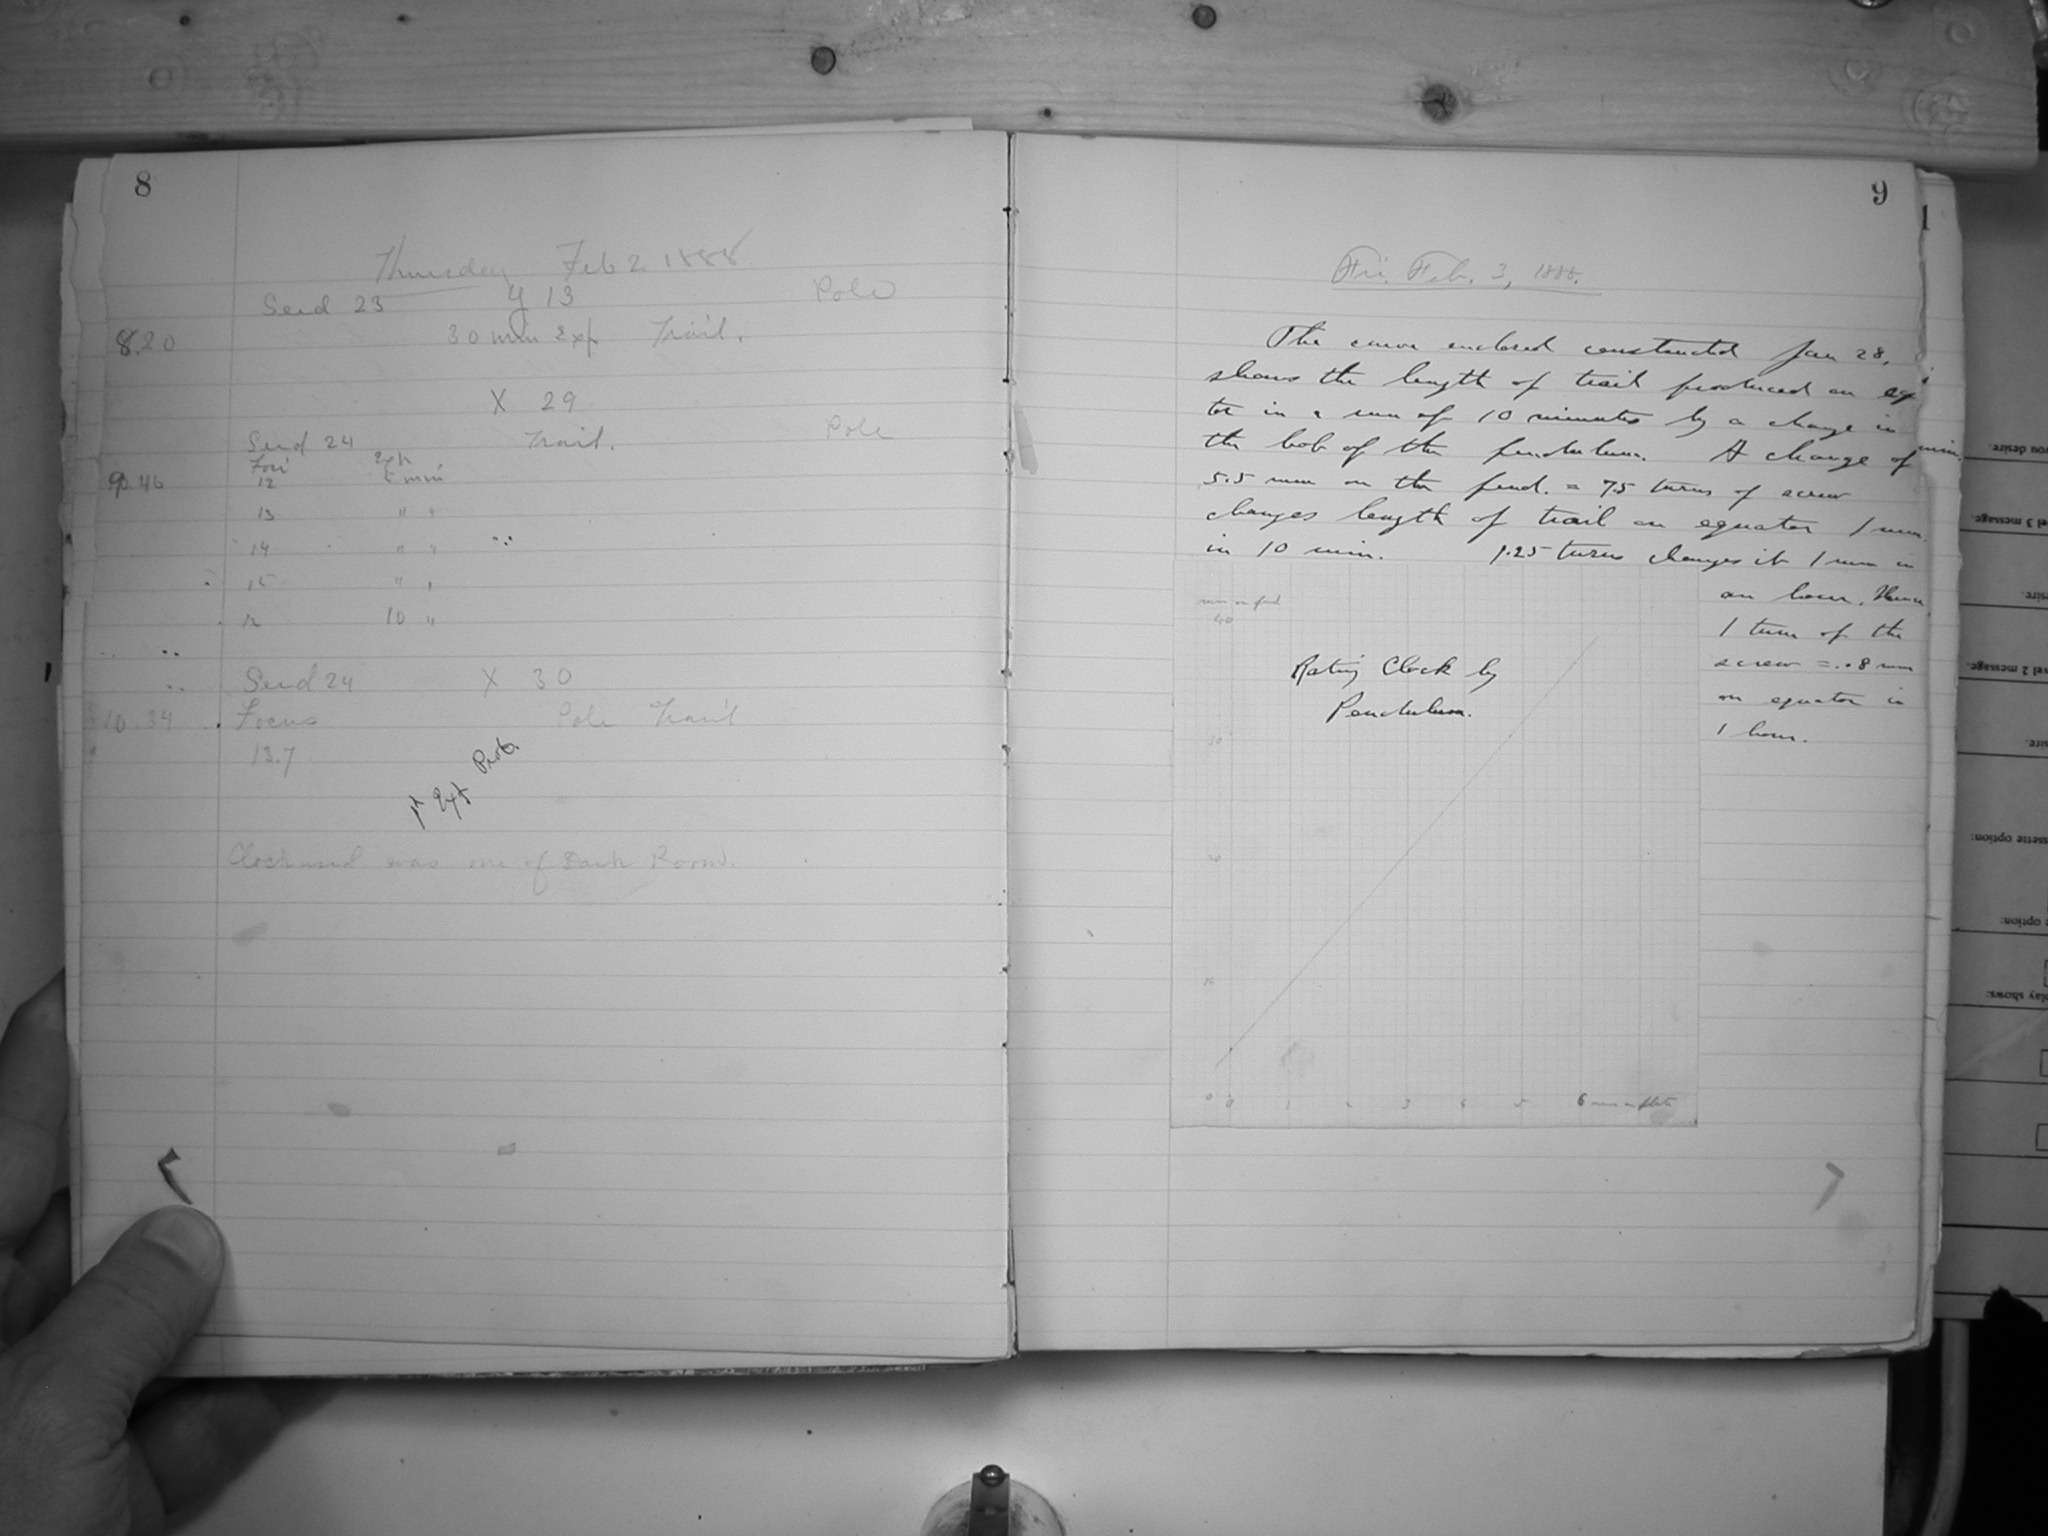 8
Thursday Feb 2 1888
Seed 23 y 13 Pole
8.20 30 min Exp Trail.
X 29
Seed 24 Trail. Pole
Foci Exp
9.46 12 5 min
13 " "
14 " "
15 " "
12 10 "
Seed 24 X 30
10.34 Focus Pole Trail
13.7
1st Exp Prob.
Clock used was one of Dark Room.
9
Fri. Feb. 3, 1888.
The curve enclosed constructed Jan 28,
shows the length of trail produced on eq
tor in a run of 10 minutes by a change in
the bob of the pendulum. A change of
5.5 mm on the pend. = 7.5 turns of screw
changes length of trail on equator 1 mm.
in 10 min. 1.25 turns changes it 1 mm in
an hour. Hence
1 turn of the
screw = .8 mm
on equator in
1 hour.
mm on pend
40
Rating Clock by
Pendulum.
30
20
10
0 0 1 2 3 4 5 6 mm on plate
you desire.
message.
vel 2 message.
ssette option:
option:
play shows: